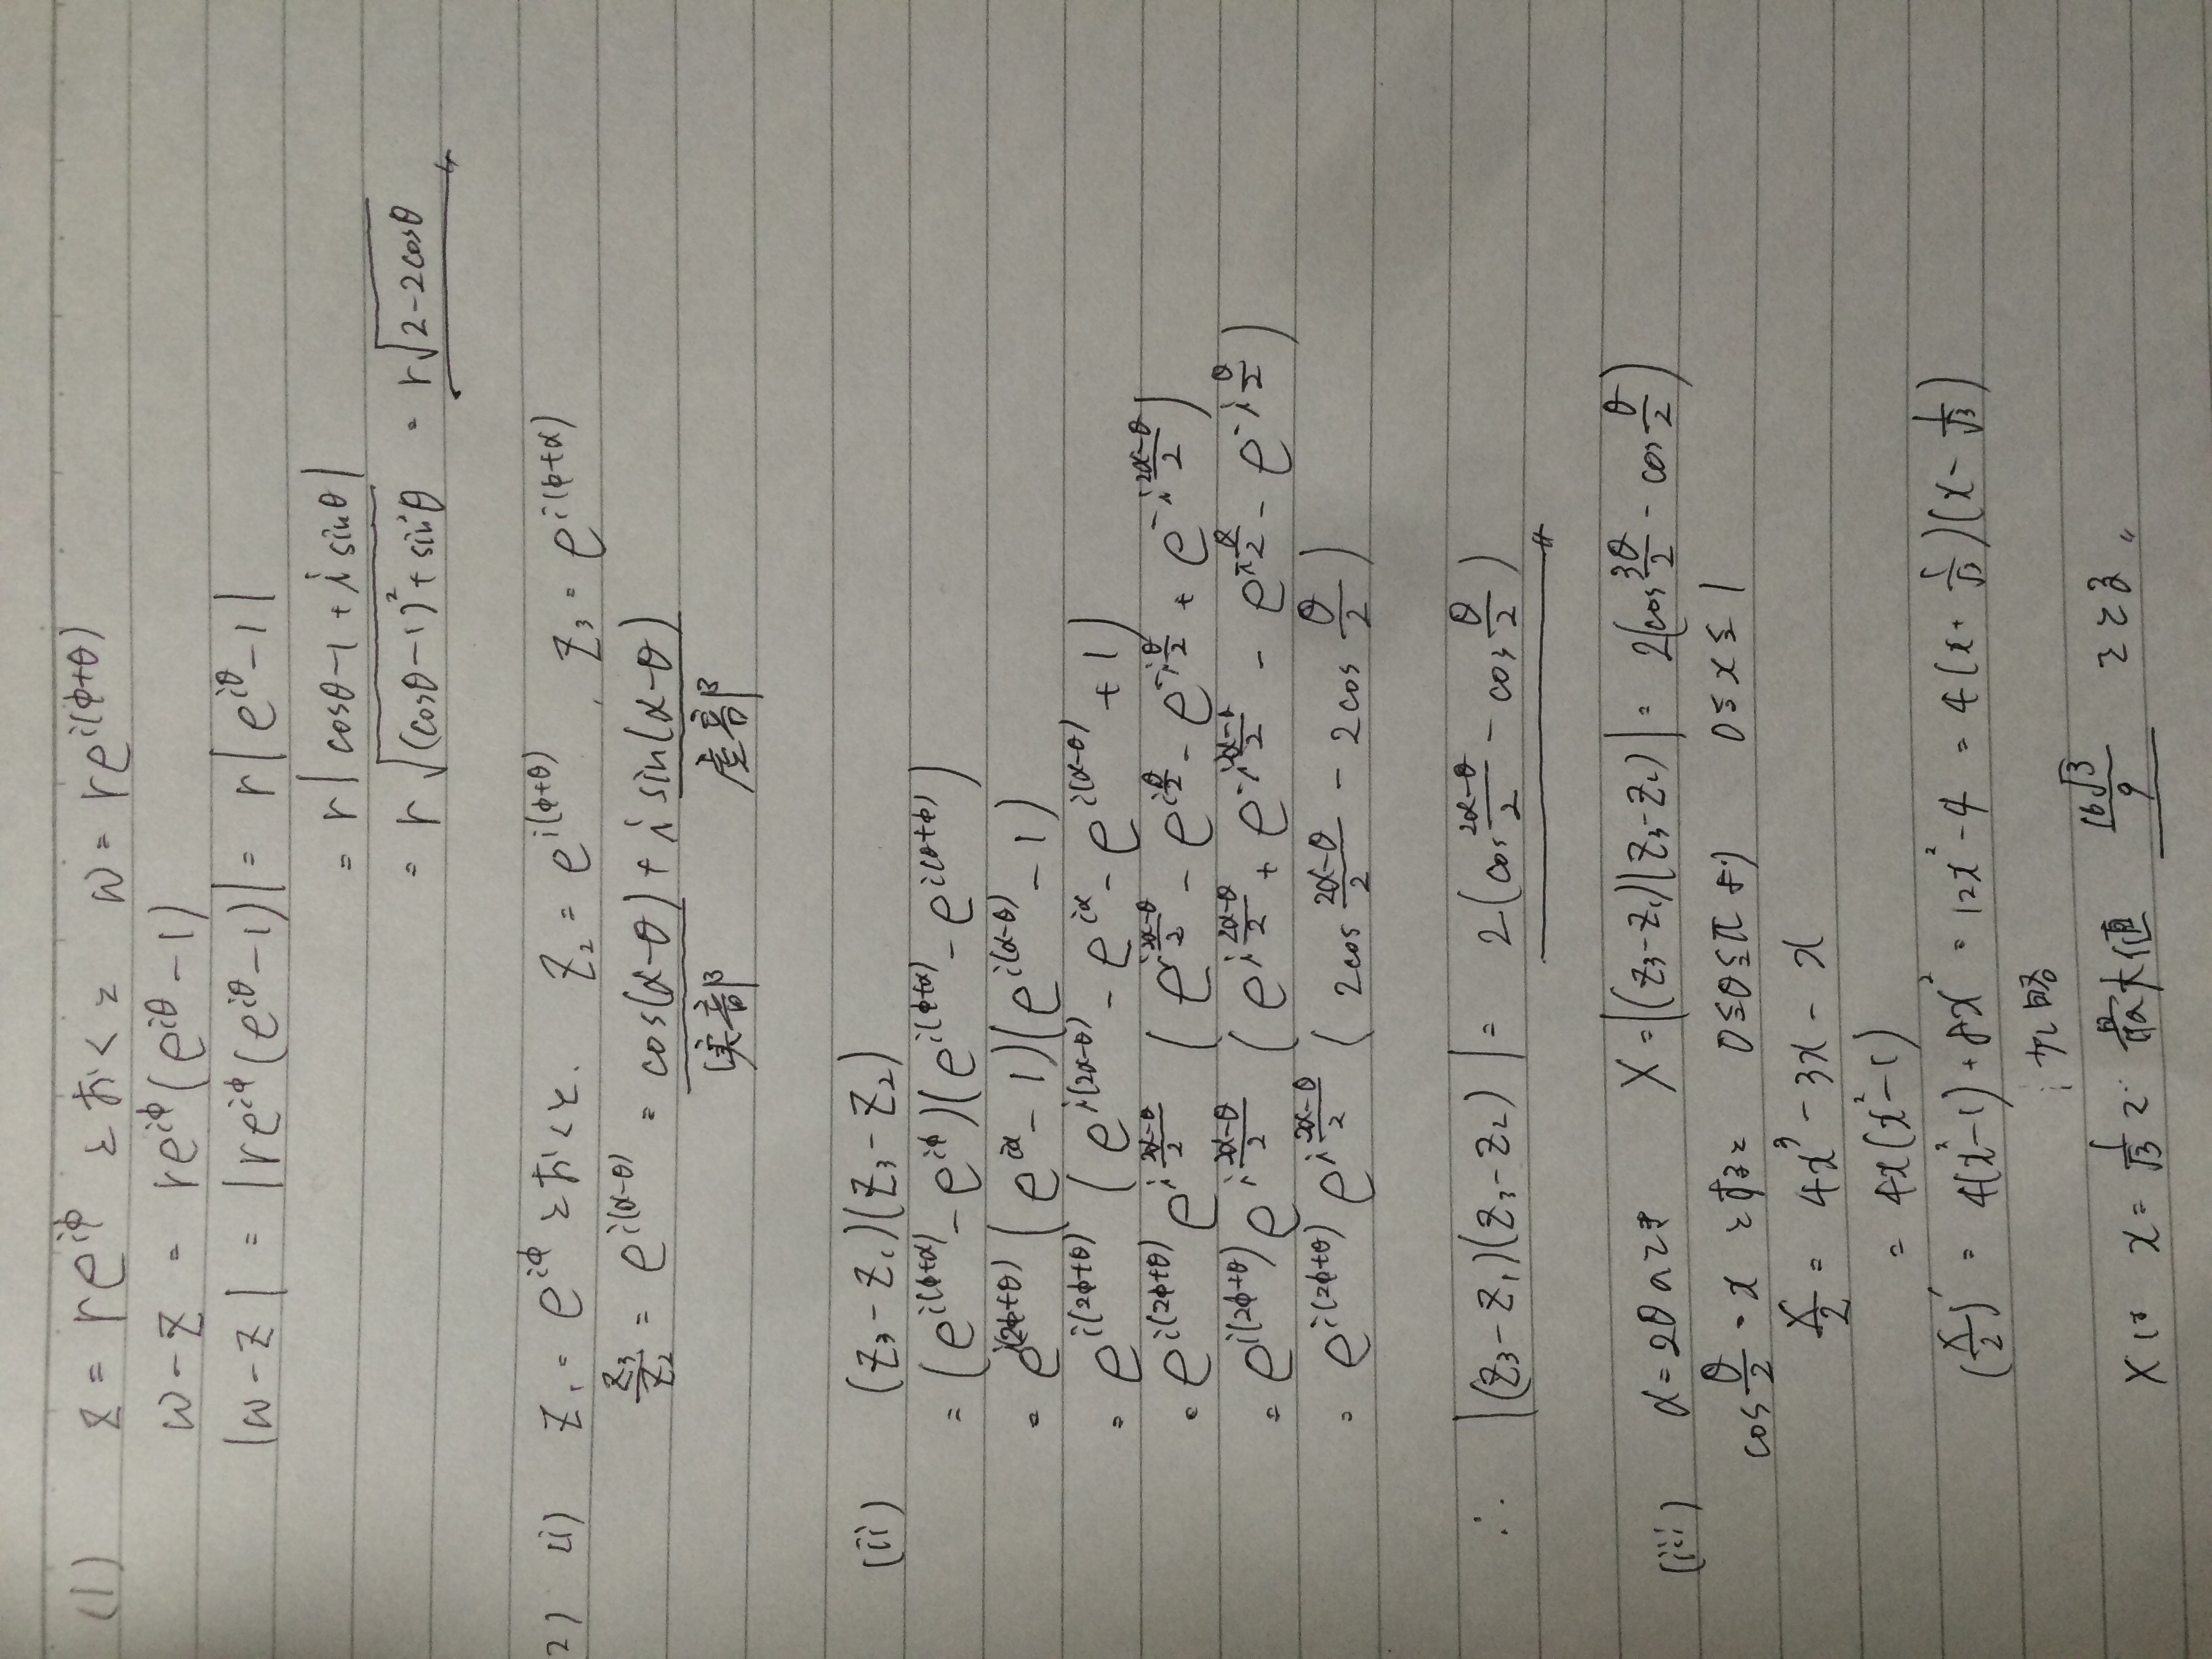 (1) z = re^{iφ} とおくと w = re^{i(φ+θ)}
w-z = re^{iφ}(e^{iθ}-1)
|w-z| = |re^{iφ}(e^{iθ}-1)| = r|e^{iθ}-1|
= r|cosθ-1+i sinθ|
= r√((cosθ-1)²+sin²θ) = r√(2-2cosθ)
2) (i) z₁ = e^{iφ} とおくと、 z₂ = e^{i(φ+θ)}, z₃ = e^{i(φ+α)}
z₃/z₂ = e^{i(α-θ)} = cos(α-θ) + i sin(α-θ)
実部 虚部
(ii) (z₃-z₁)(z₃-z₂)
= (e^{i(φ+α)}-e^{iφ})(e^{i(φ+α)}-e^{i(θ+φ)})
= e^{i(2φ+θ)}(e^{iα}-1)(e^{i(α-θ)}-1)
= e^{i(2φ+θ)}(e^{i(2α-θ)}-e^{iα}-e^{i(α-θ)}+1)
= e^{i(2φ+θ)} e^{i(2α-θ)/2}(e^{i(2α-θ)/2}-e^{iθ/2}-e^{-iθ/2}+e^{-i(2α-θ)/2})
= e^{i(2φ+θ)} e^{i(2α-θ)/2}(e^{i(2α-θ)/2}+e^{-i(2α-θ)/2}-e^{iθ/2}-e^{-iθ/2})
= e^{i(2φ+θ)} e^{i(2α-θ)/2}(2cos (2α-θ)/2 - 2cos θ/2)
∴ |(z₃-z₁)(z₃-z₂)| = 2(cos (2α-θ)/2 - cos θ/2)
(iii) α=2θのとき X = |(z₃-z₁)(z₃-z₂)| = 2(cos 3θ/2 - cos θ/2)
cos θ/2 = x とすると 0≤θ≤π より 0≤x≤1
X/2 = 4x³-3x-x
= 4x(x²-1)
(X/2)' = 4(x²-1)+8x² = 12x²-4 = 4(x+1/√3)(x-1/√3)
⋮ 省略
Xは x=1/√3 で 最大値 16√3/9 をとる〃